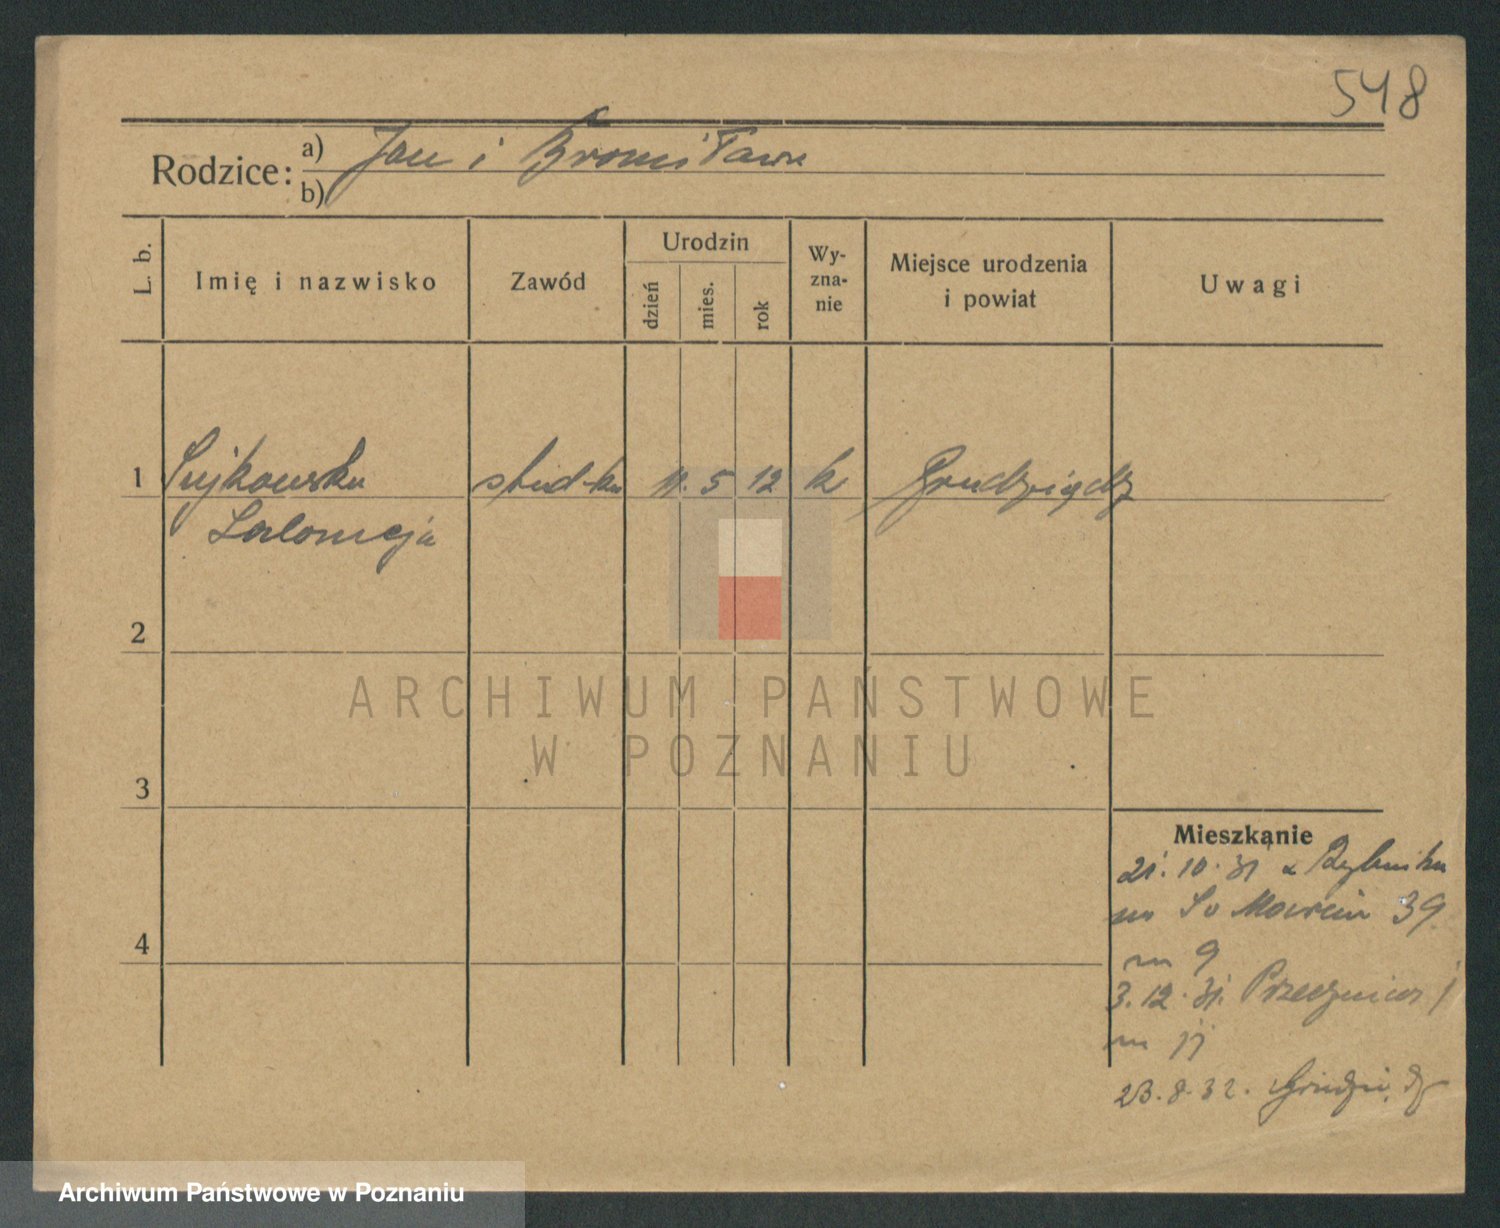 548
Rodzice:
a) Jan i Bronisława
b)
L. b.
Imię i nazwisko
Zawód
Urodzin
dzień
mies.
rok
Wy-
zna-
nie
Miejsce urodzenia
i powiat
Uwagi
1 Sujkowska stud-ka 11. 5 12 k Grudziądz
Salomeja
2
3
4
Mieszkanie
21. 10. 31 z Rybnika
na Św Marcin 39
m 9
3. 12. 31. Przecznica
m 11
23. 8. 32. Grudziądz
ARCHIWUM PAŃSTWOWE
W POZNANIU
Archiwum Państwowe w Poznaniu